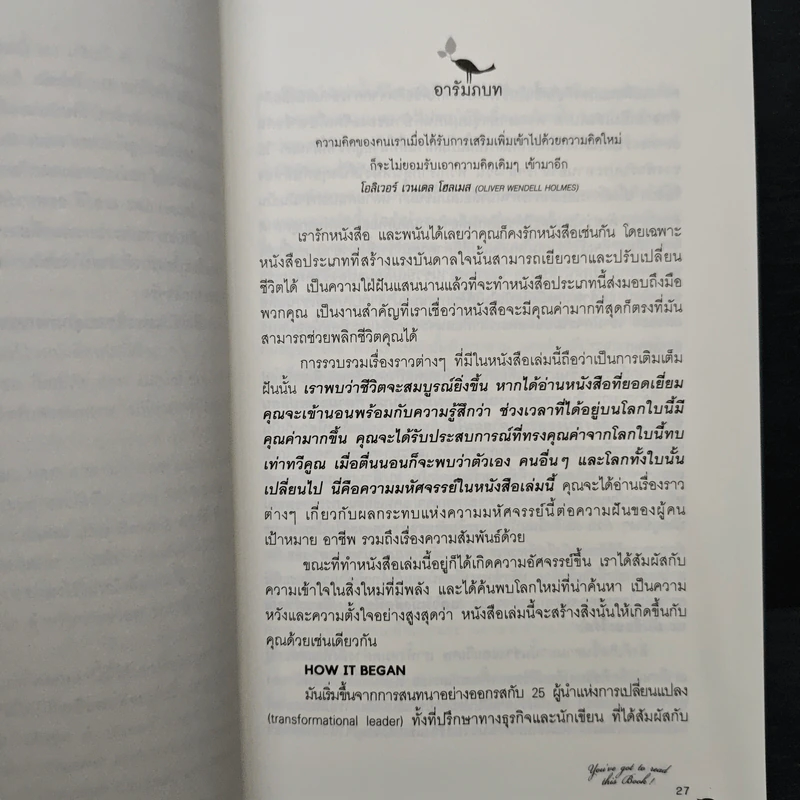 อารัมภบท
ความคิดของคนเราเมื่อได้รับการเสริมเพิ่มเข้าไปด้วยความคิดใหม่
ก็จะไม่ยอมรับเอาความคิดเดิมๆ เข้ามาอีก
โอลิเวอร์ เวนเดล โฮลเมส (OLIVER WENDELL HOLMES)
เรารักหนังสือ และพนันได้เลยว่าคุณก็คงรักหนังสือเช่นกัน โดยเฉพาะ
หนังสือประเภทที่สร้างแรงบันดาลใจนั้นสามารถเยียวยาและปรับเปลี่ยน
ชีวิตได้ เป็นความใฝ่ฝันแสนนานแล้วที่จะทำหนังสือประเภทนี้ส่งมอบถึงมือ
พวกคุณ เป็นงานสำคัญที่เราเชื่อว่าหนังสือจะมีคุณค่ามากที่สุดก็ตรงที่มัน
สามารถช่วยพลิกชีวิตคุณได้
การรวบรวมเรื่องราวต่างๆ ที่มีในหนังสือเล่มนี้ถือว่าเป็นการเติมเต็ม
ฝันนั้น เราพบว่าชีวิตจะสมบูรณ์ยิ่งขึ้น หากได้อ่านหนังสือที่ยอดเยี่ยม
คุณจะเข้านอนพร้อมกับความรู้สึกว่า ช่วงเวลาที่ได้อยู่บนโลกใบนี้มี
คุณค่ามากขึ้น คุณจะได้รับประสบการณ์ที่ทรงคุณค่าจากโลกใบนี้ทบ
เท่าทวีคูณ เมื่อตื่นนอนก็จะพบว่าตัวเอง คนอื่นๆ และโลกทั้งใบนั้น
เปลี่ยนไป นี่คือความมหัศจรรย์ในหนังสือเล่มนี้ คุณจะได้อ่านเรื่องราว
ต่างๆ เกี่ยวกับผลกระทบแห่งความมหัศจรรย์นี้ต่อความฝันของผู้คน
เป้าหมาย อาชีพ รวมถึงเรื่องความสัมพันธ์ด้วย
ขณะที่ทำหนังสือเล่มนี้อยู่ก็ได้เกิดความอัศจรรย์ขึ้น เราได้สัมผัสกับ
ความเข้าใจในสิ่งใหม่ที่มีพลัง และได้ค้นพบโลกใหม่ที่น่าค้นหา เป็นความ
หวังและความตั้งใจอย่างสูงสุดว่า หนังสือเล่มนี้จะสร้างสิ่งนั้นให้เกิดขึ้นกับ
คุณด้วยเช่นเดียวกัน
HOW IT BEGAN
มันเริ่มขึ้นจากการสนทนาอย่างออกรสกับ 25 ผู้นำแห่งการเปลี่ยนแปลง
(transformational leader) ทั้งที่ปรึกษาทางธุรกิจและนักเขียน ที่ได้สัมผัสกับ
You've got to read
this Book!
27